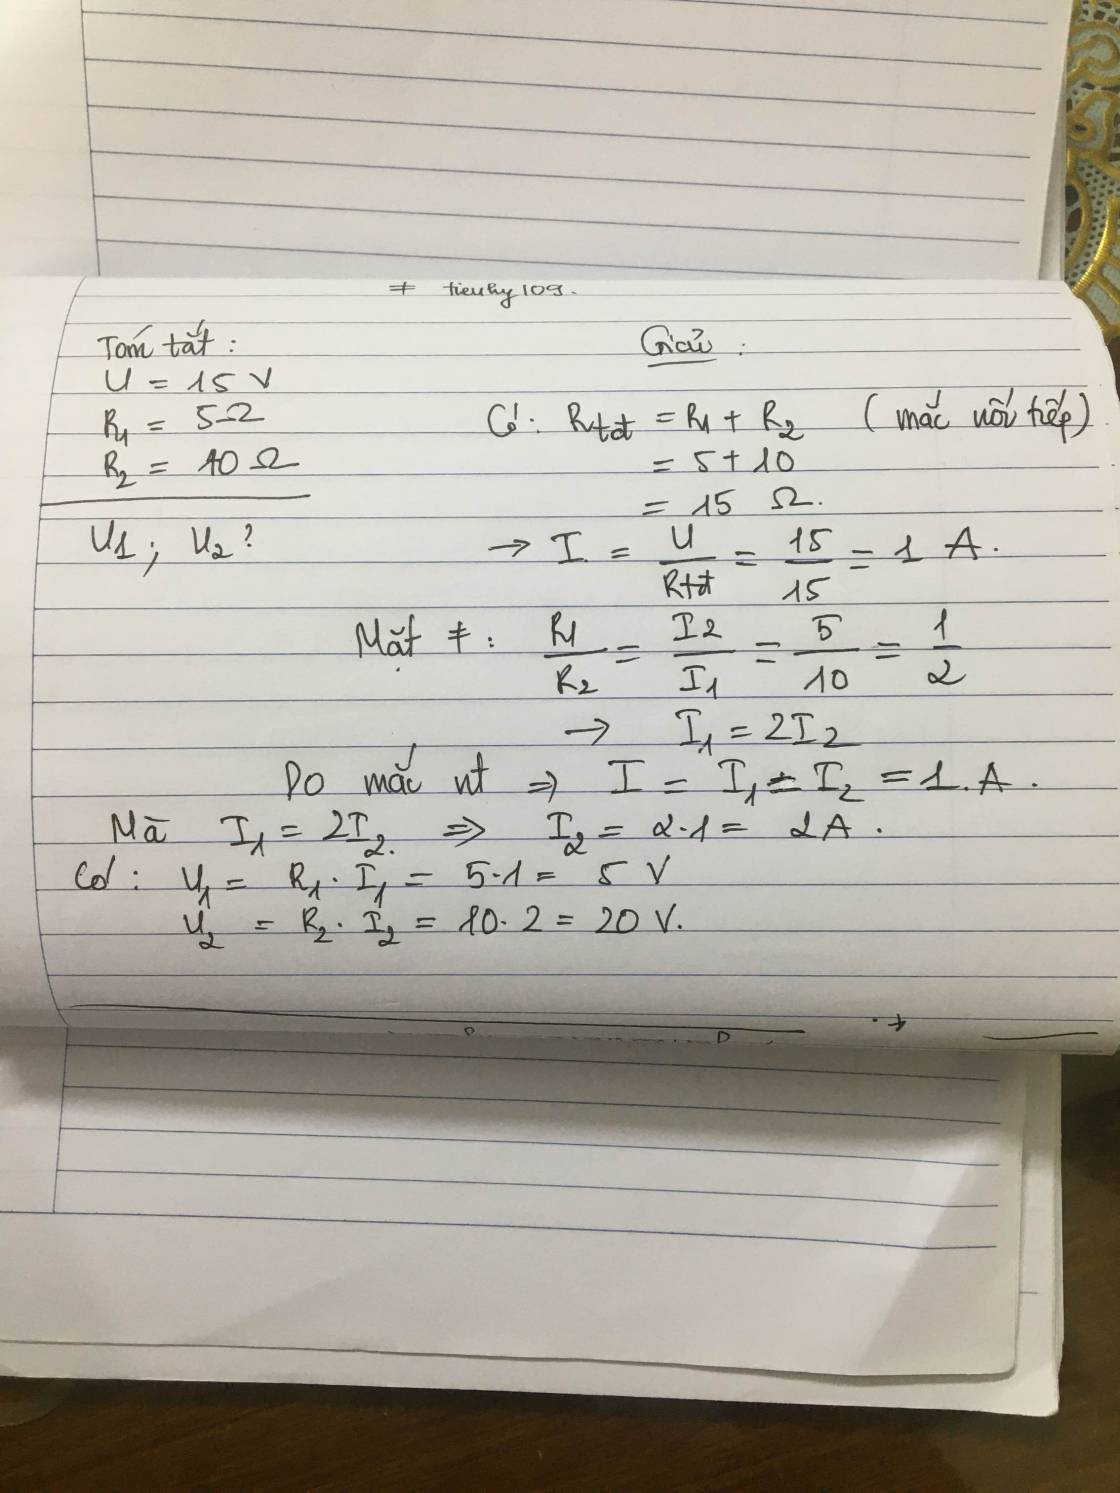 ≠ tieuhy109.
Tóm tắt:
U = 15 V
R1 = 5Ω
R2 = 10 Ω
U1; U2?
Giải:
Có: Rtđ = R1 + R2 (mắc nối tiếp)
= 5 + 10
= 15 Ω.
→ I = U/Rtđ = 15/15 = 1 A.
Mặt ≠: R1/R2 = I2/I1 = 5/10 = 1/2
→ I1 = 2I2
Do mắc nt ⇒ I = I1 = I2 = 1.A.
Mà I1 = 2I2. ⇒ I2 = 2.1 = 2A.
Có: U1 = R1. I1 = 5.1 = 5 V
U2 = R2. I2 = 10. 2 = 20 V.